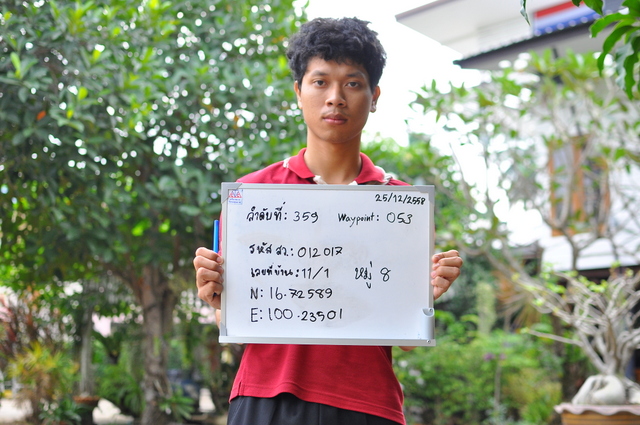 25/12/2558
ลำดับที่: 359 Waypoint: 053
รหัส สว: 012017
เลขที่บ้าน: 11/1 หมู่ 8
N: 16.72589
E: 100.23501